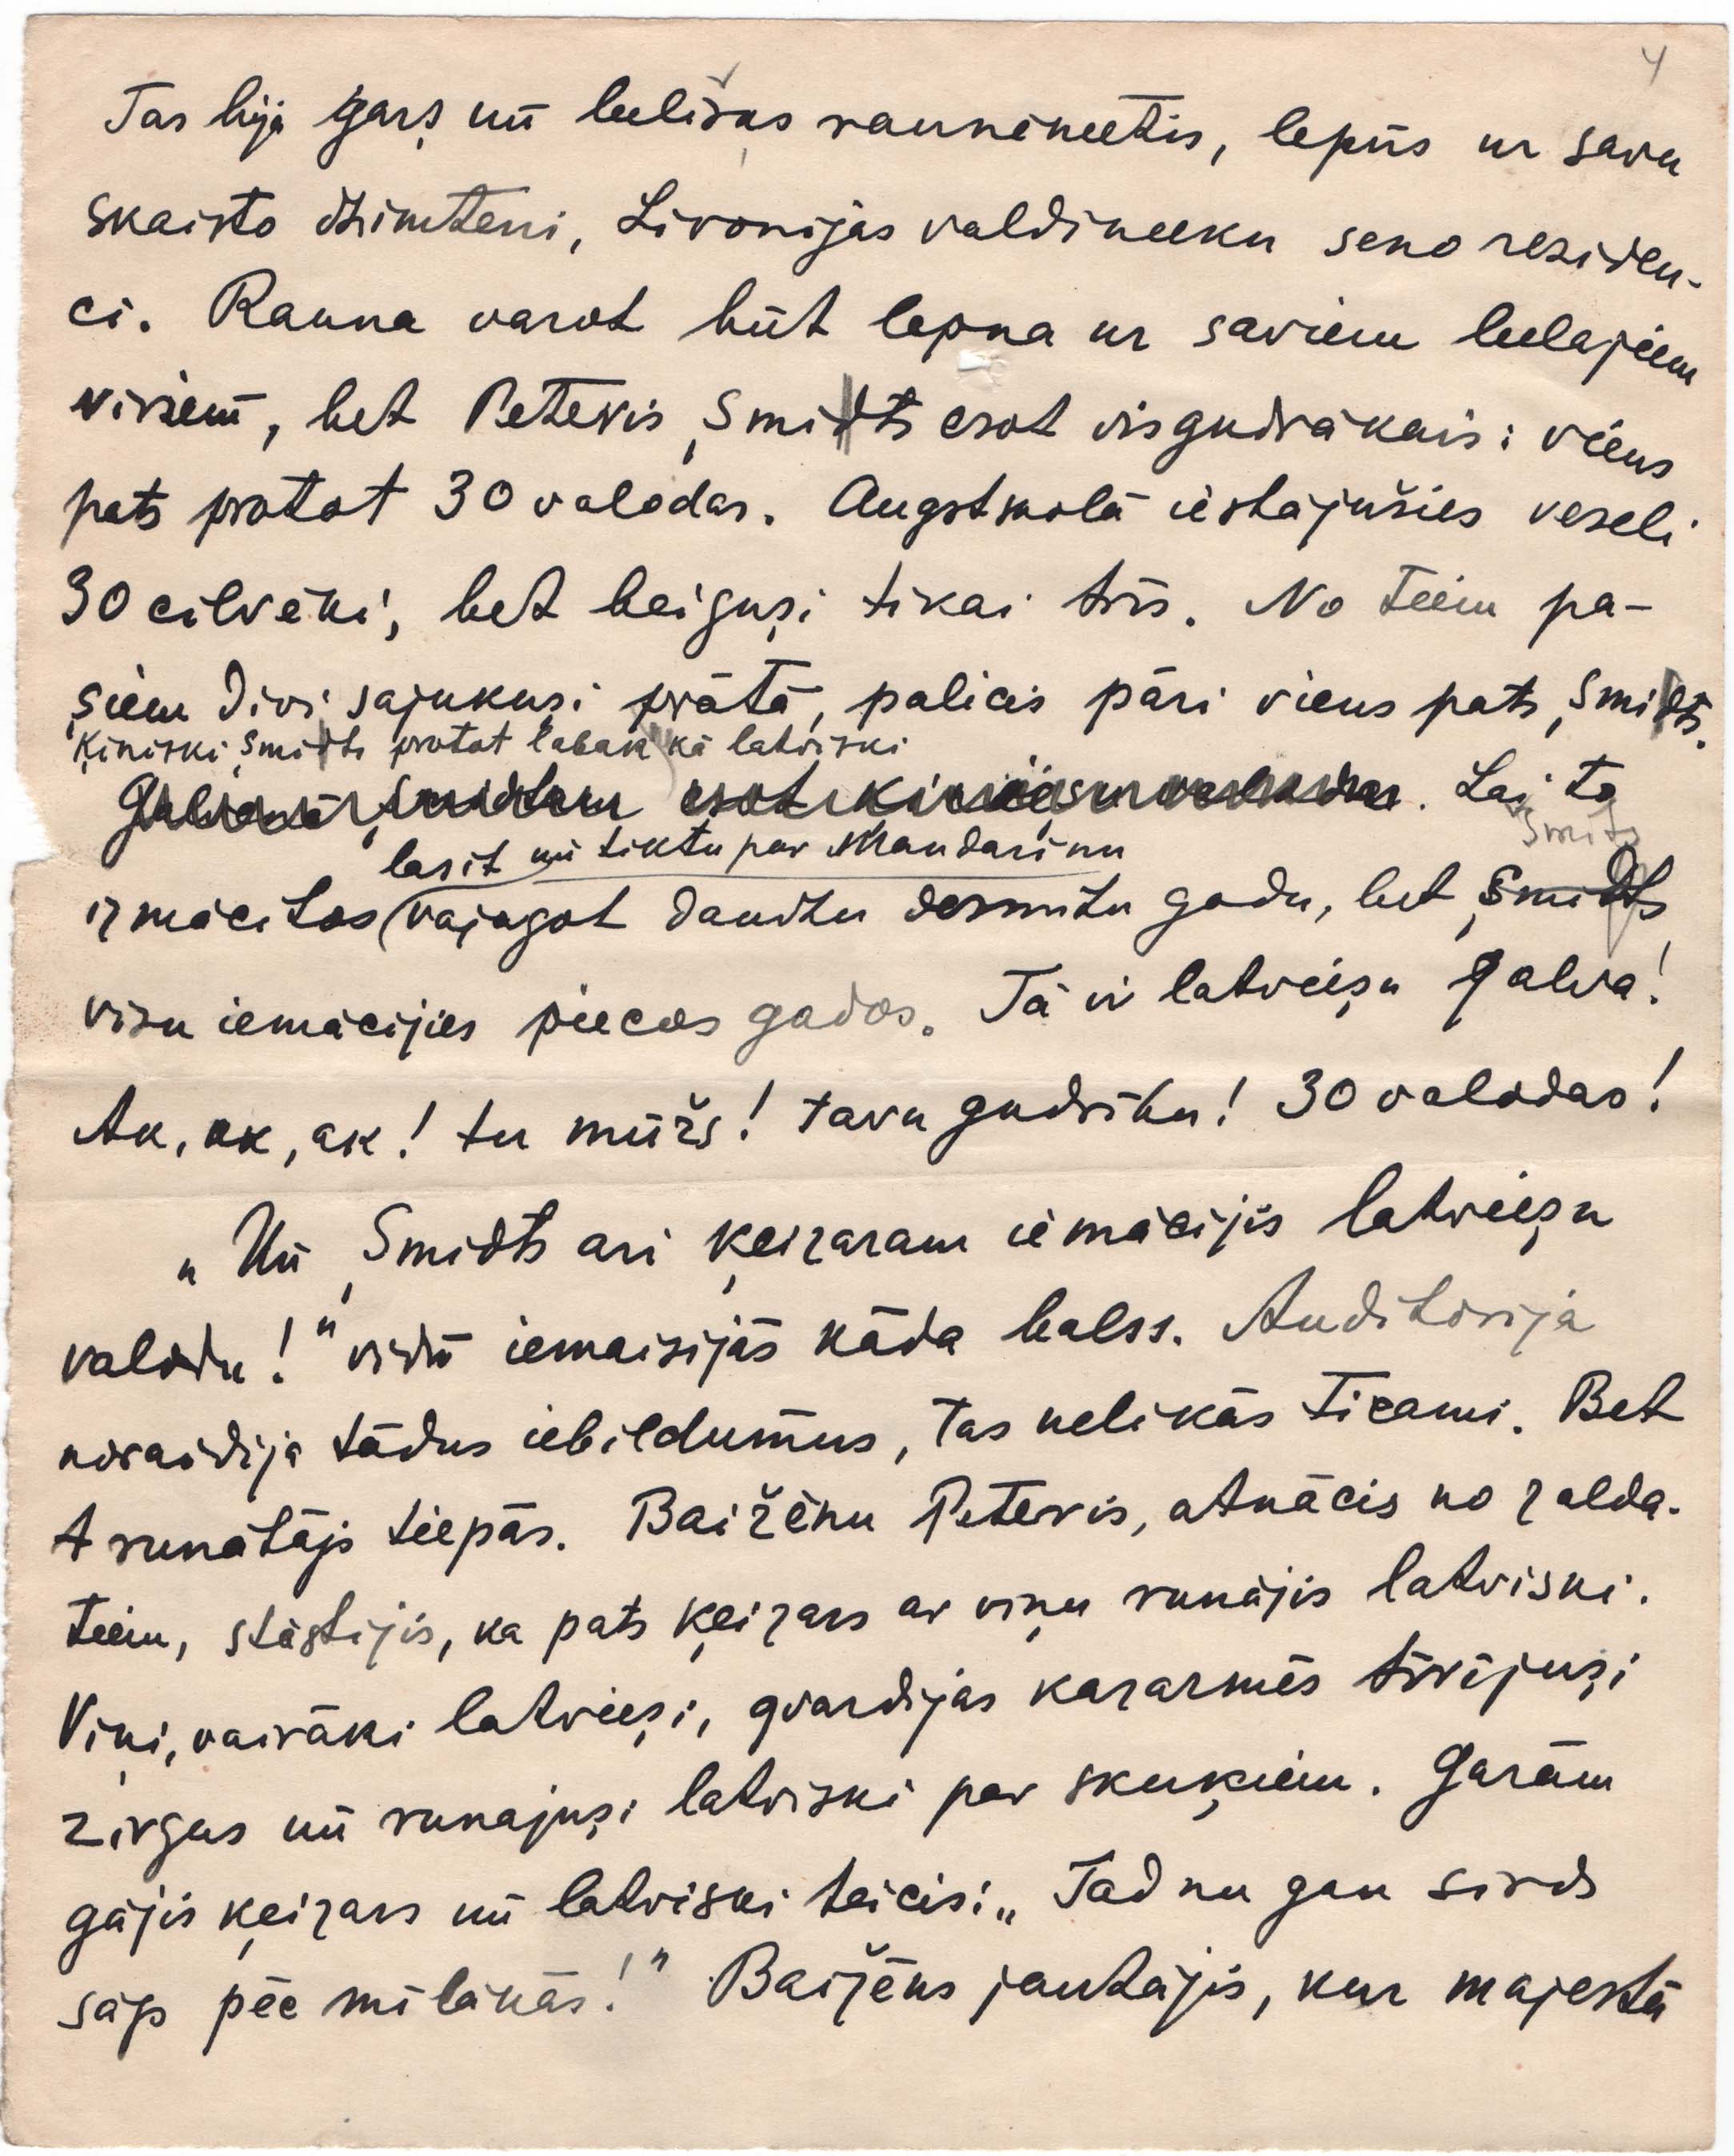 4
Tas bija gaŗš un leelišķs raunēneetis, lepns ur savu
skaisto dzimteni, Livonijas valdineeku seno residen-
ci. Rauna varot būt lepna ur saviem leelajiem
viriem, bet Peteris Şmidts esot visgudrākais: viens
pats protot 30 valodas. Augstskolā iestājušies veseli
30 cilvēki, bet beiguşi tikai trīs. No teem pa-
şiem divi sajukuşi prātā, palicis pāri viens pats Şmidts.
Ķiniski Şmidts protot labak kā latviski
. Lai to
lasit un tiktu par Mandarinu
Smits
izmācitos vajagot daudzu desmitu gadu, bet Şmidts
visu iemācijies piecos gados. Tā ir latvieşu galva!
Ak, ak, ak! tu mūžs! tavu gudrību! 30 valodas!
„Un Şmidts ari ķeizaram iemācijis latvieşu
valodu!" vidū iemaisijās kāda balss. Auditorija
noraidija tādus iebildumus, tas nelikās ticami. Bet
runātājs tiepās. Baižēnu Peteris, atnācis no zalda-
teem, stāstijis, ka pats ķeizars ar viņu runājis latviski.
Viņi, vairāki latvieşi, gvardijas kazarmēs tīrījuşi
zirgus un runajuşi latviski par skuķiem. Garām
gājis ķeizars un latviski teicis: „Tad nu gan sirds
sāp pēc mīļākās!" Baižēns jautājis, kur majestā